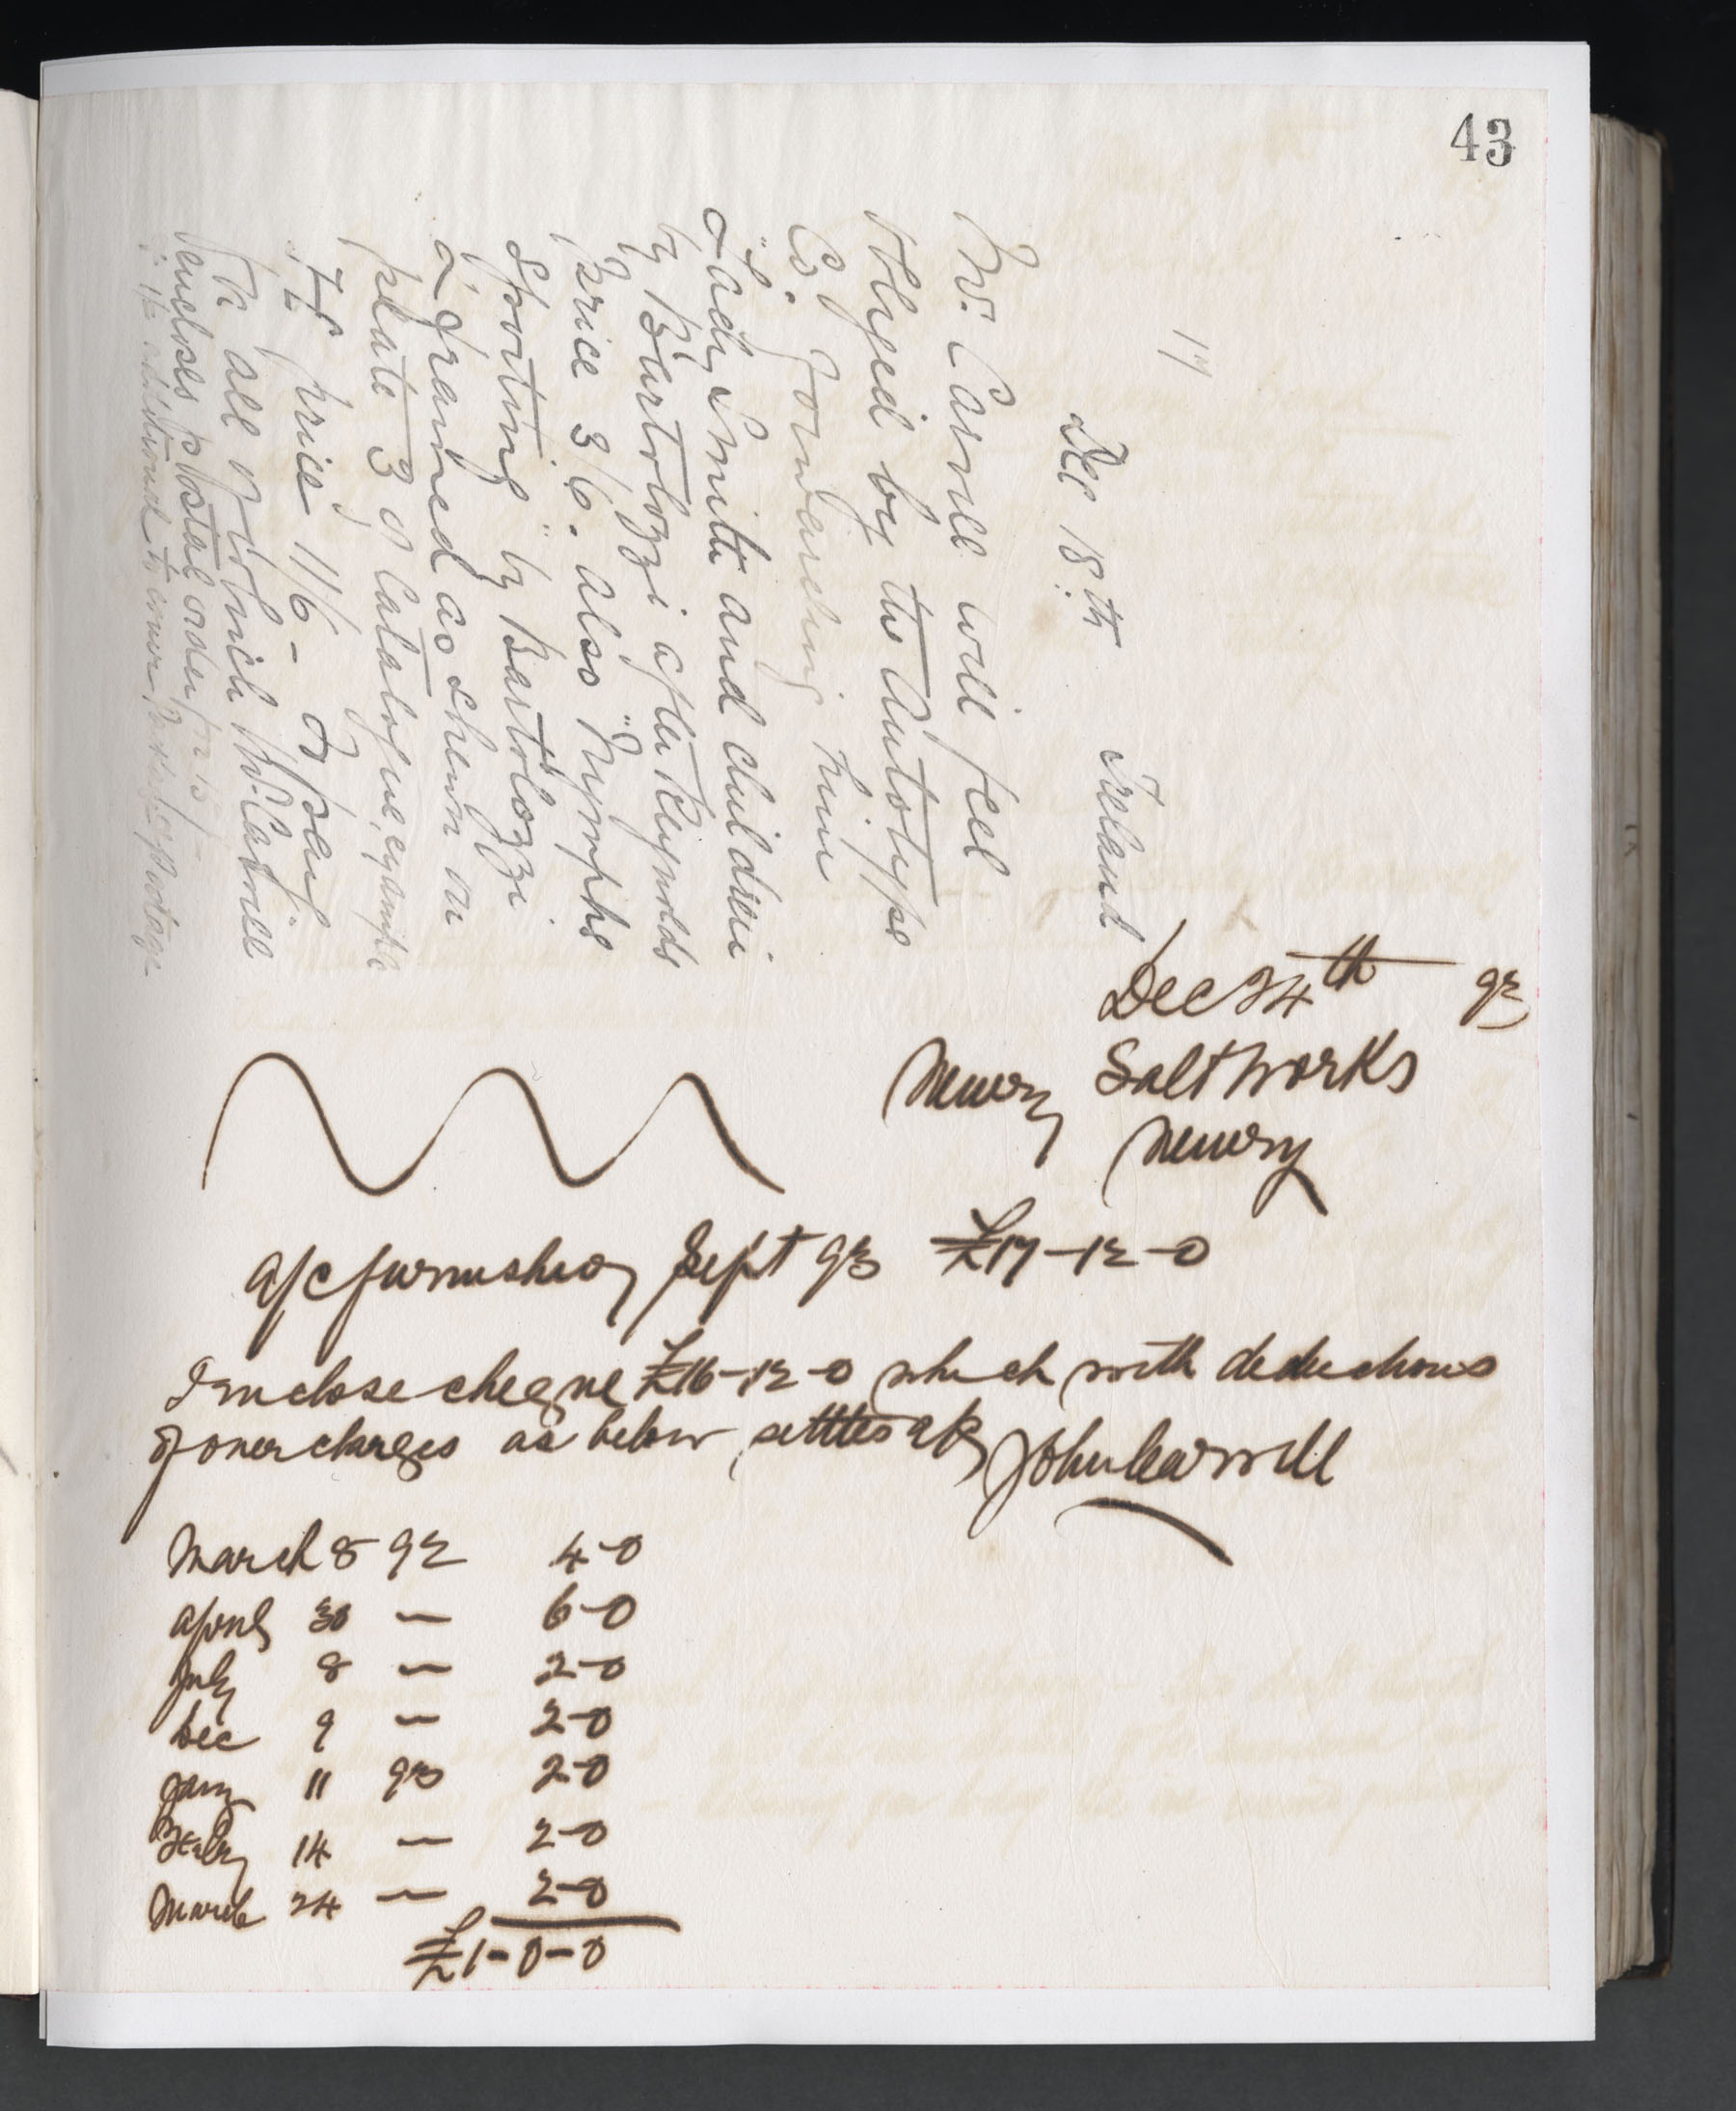 43
17
Dec 18th Ireland
Mr. Carvill will feel
Obliged by the Autotype
Co. forwarding him
"Lady Smith and children"
by Bartolozzi after Reynolds
price 3/6. also "Nymphs
Sporting" by Bartolozzi
& framed as shewn on
plate 3 of Catalogue, example
74 price 11/6 -
for all of which Mr. Carvill
encloses postal order for 15/-
additional to cover postage
Dec 24th 93
Newry Salt Works
Newry
a/c furnished Sept 93 £17-12-0
I enclose cheque £16-12-0 which with deductions
of overcharges as below settles a/c John Carvill
March 8 92 4-0
April 30 — 6-0
July 8 — 2-0
Dec 9 — 2-0
Jany 11 93 2-0
Feby 14 — 2-0
March 24 — 2-0
£1-0-0